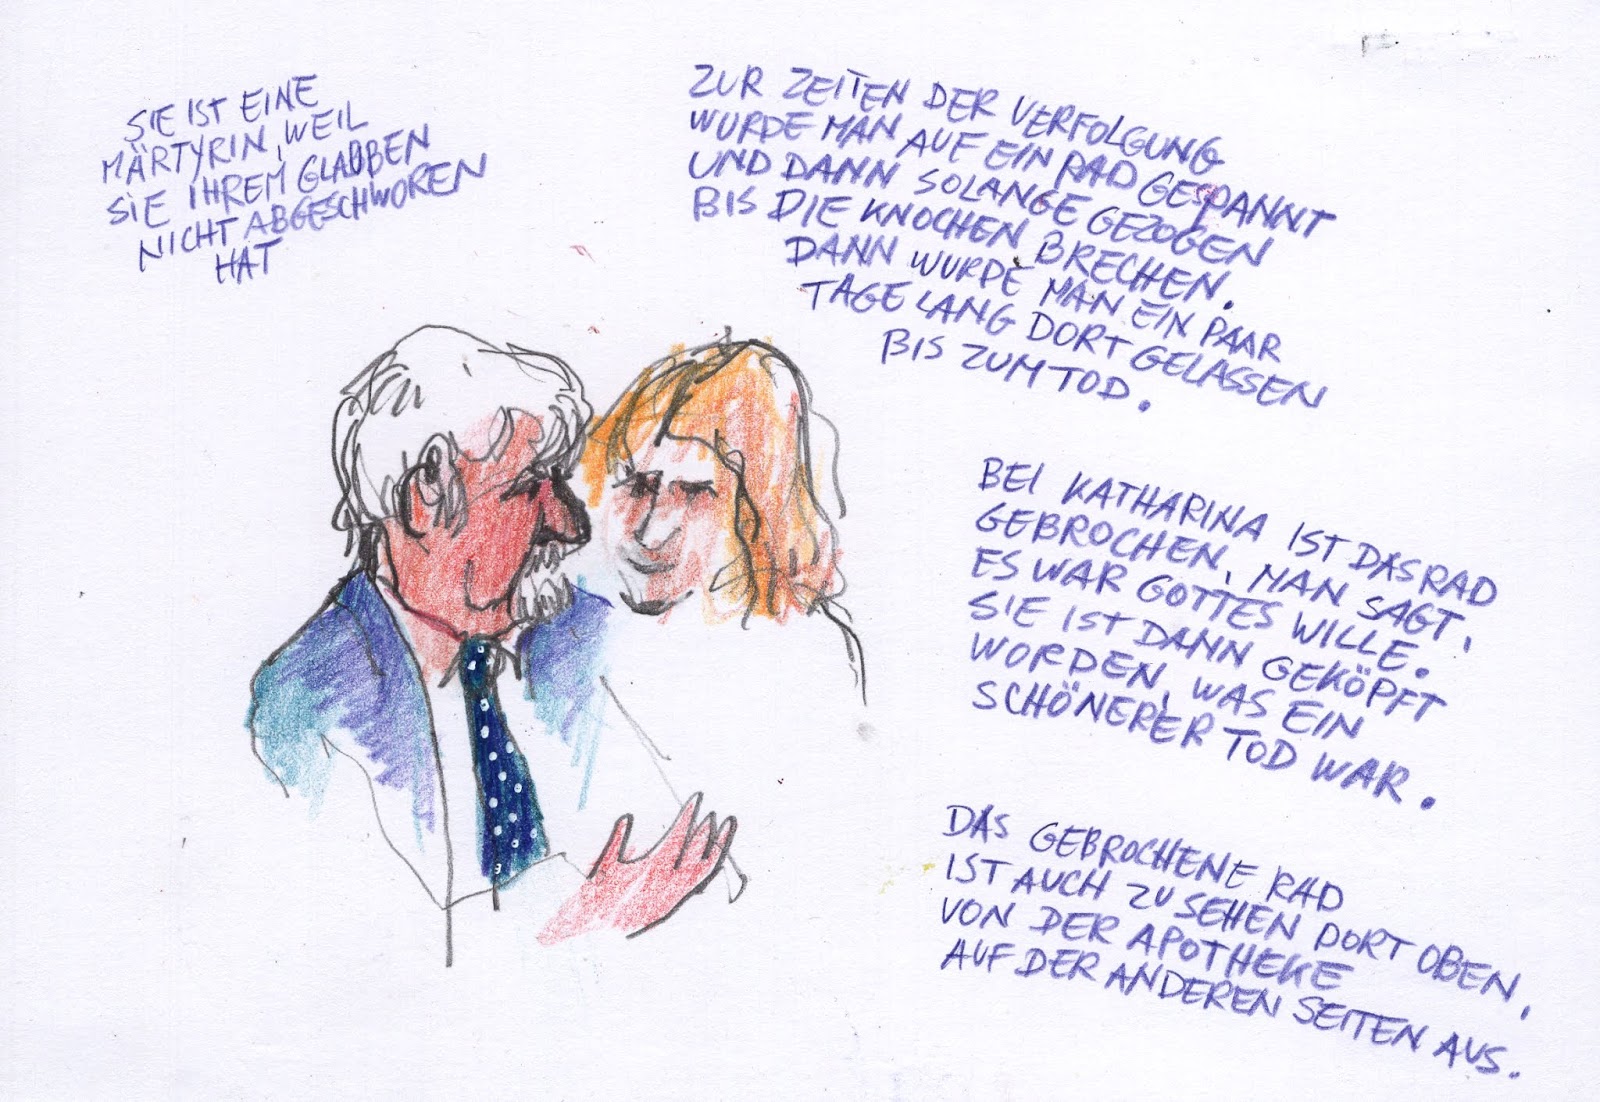 SIE IST EINE
MÄRTYRIN, WEIL
SIE IHREM GLAUBEN
NICHT ABGESCHWOREN
HAT
ZUR ZEITEN DER VERFOLGUNG
WURDE MAN AUF EIN RAD GESPANNT
UND DANN SOLANGE GEZOGEN
BIS DIE KNOCHEN BRECHEN.
DANN WURDE MAN EIN PAAR
TAGE LANG DORT GELASSEN
BIS ZUM TOD.
BEI KATHARINA IST DAS RAD
GEBROCHEN, MAN SAGT,
ES WAR GOTTES WILLE.
SIE IST DANN GEKÖPFT
WORDEN, WAS EIN
SCHÖNERER TOD WAR.
DAS GEBROCHENE RAD
IST AUCH ZU SEHEN DORT OBEN,
VON DER APOTHEKE
AUF DER ANDEREN SEITEN AUS.